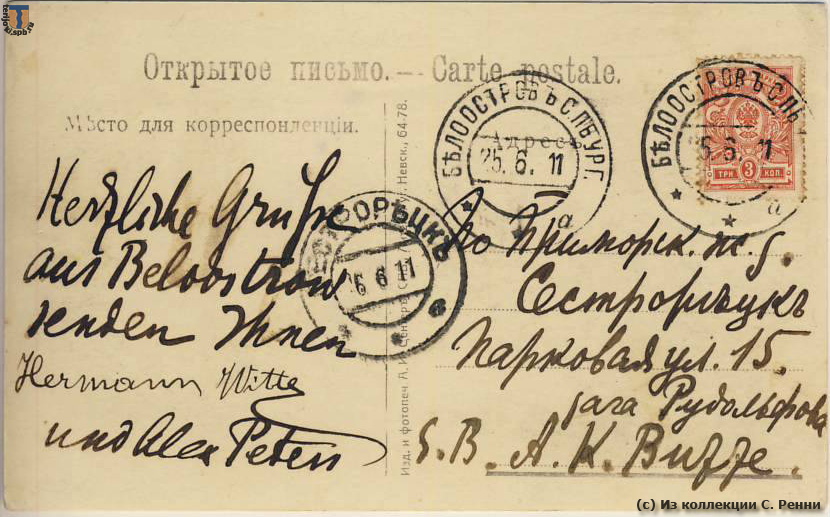 terijoki.spb.ru
Открытое письмо. — Carte postale.
Мѣсто для корреспонденціи.
Адресъ
Herzliche Grüße
aus Beloostrow
senden Ihnen
Hermann Witte
und Alex Peters
Изд. и фотопеч. А. И. Невск., 64-78.
БѢЛООСТРОВЪ С.ПБУРГ.
25. 6. 11
а
БѢЛООСТРОВЪ СПБ
25. 6. 11
а
ТРИ 3 КОП.
СЕСТРОРѢЦКЪ
26 6 11
По Приморск. ж. д.
Сестрорѣцкъ
Парковая ул. 15.
дача Рудольфова
Е. В. А. К. Витте.
(c) Из коллекции С. Ренни